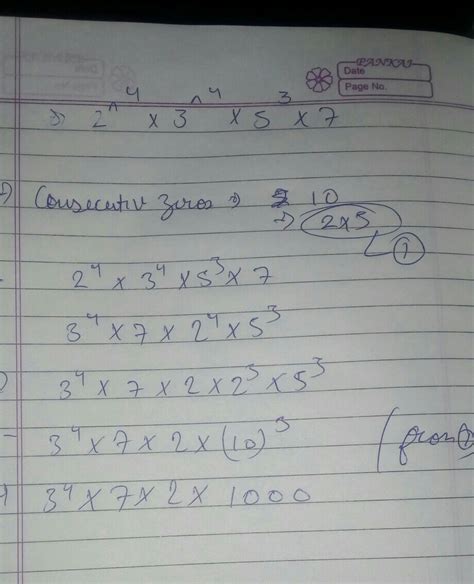 PANKAJ
Date
Page No.
⇒ 2^4 × 3^4 × 5^3 × 7
⇒) Consecutiv zeros ⇒ 10
⇒ 2×5
①
2⁴ × 3⁴ × 5³ × 7
3⁴ × 7 × 2⁴ × 5³
3⁴ × 7 × 2 × 2³ × 5³
3⁴ × 7 × 2 × (10)³ (from ①
3⁴ × 7 × 2 × 1000